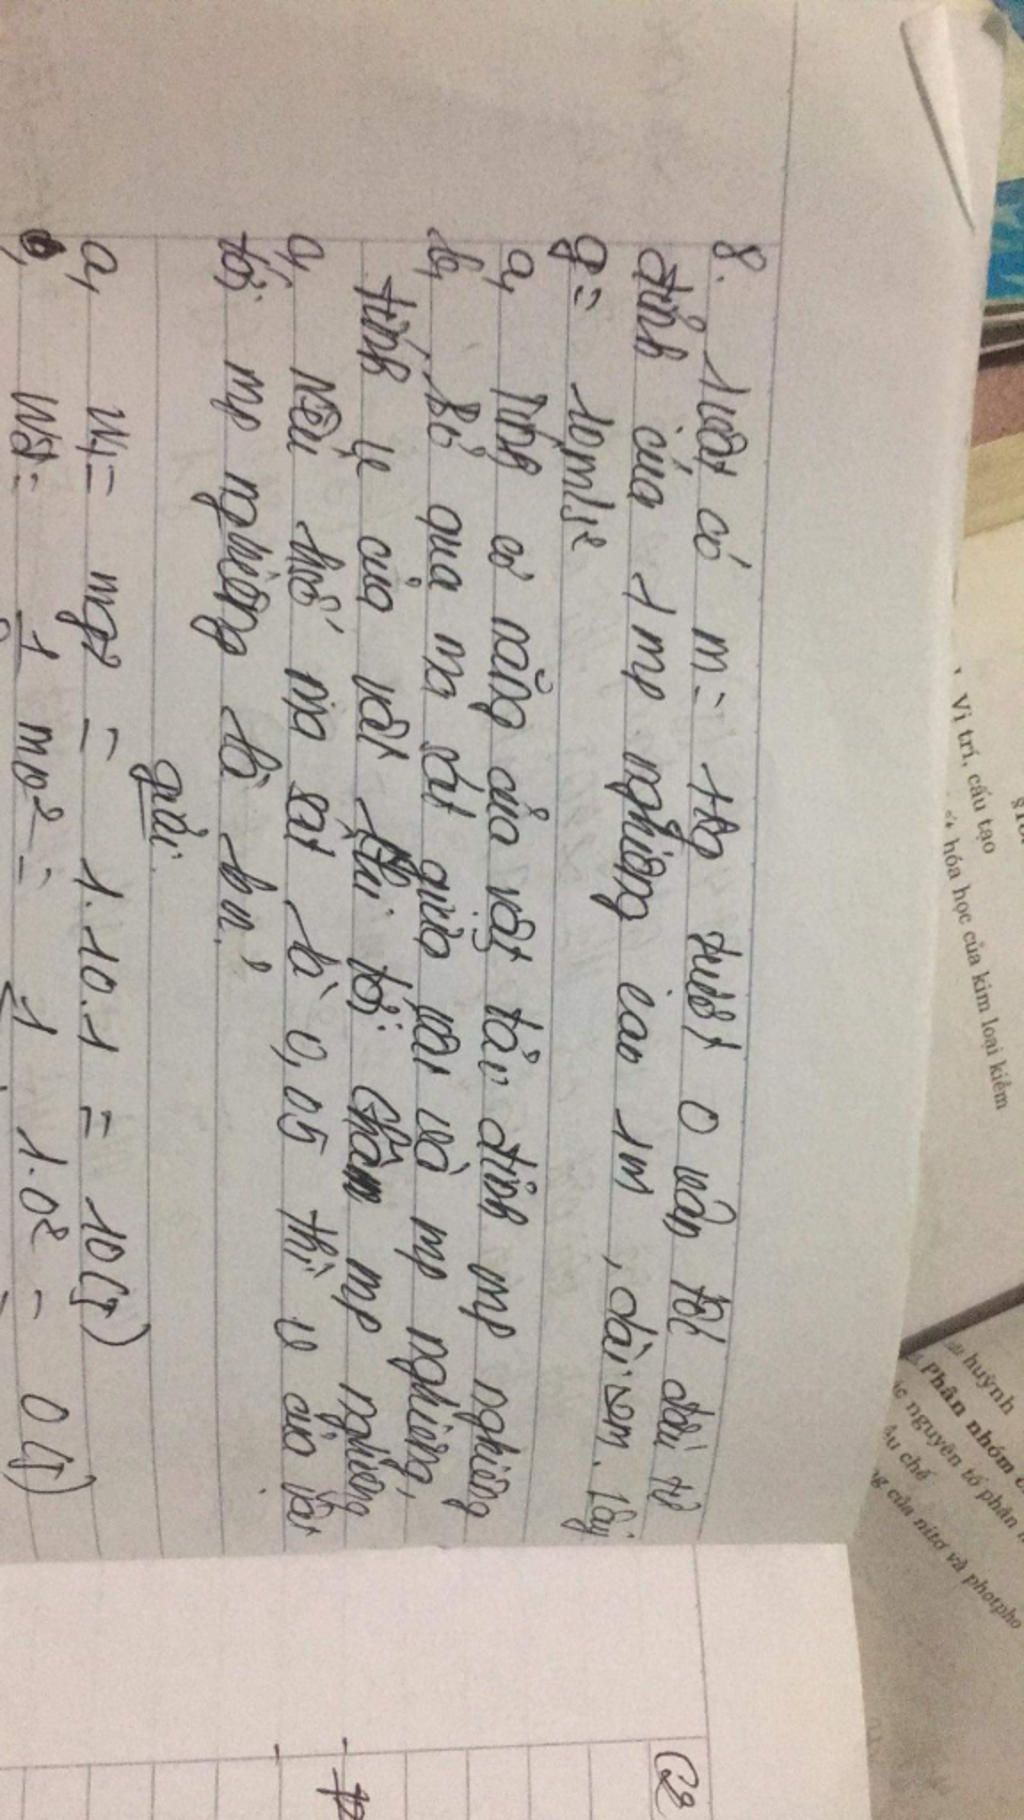 8. 1 vật có m = 1kg trượt 0 vận tốc đầu từ
đỉnh của 1 mp nghiêng cao 1m, dài 2m. lấy
g = 10m/s²
a, Tính cơ năng của vật tại đỉnh mp nghiêng
b, Bỏ qua ma sát giữa vật và mp nghiêng,
tính v của vật khi tới chân mp nghiêng
c, Nếu hsố ma sát là 0,05 thì v của vật
tới mp nghiêng là bn?
giải
a, Wt = mgz = 1.10.1 = 10(J)
Wđ = 1 mv² = 1 1.0² = 0(J)
Vị trí, cấu tạo
hóa học của kim loại kiềm
huỳnh
Phân nhóm
nguyên tố phân
chế
của nitơ và photpho